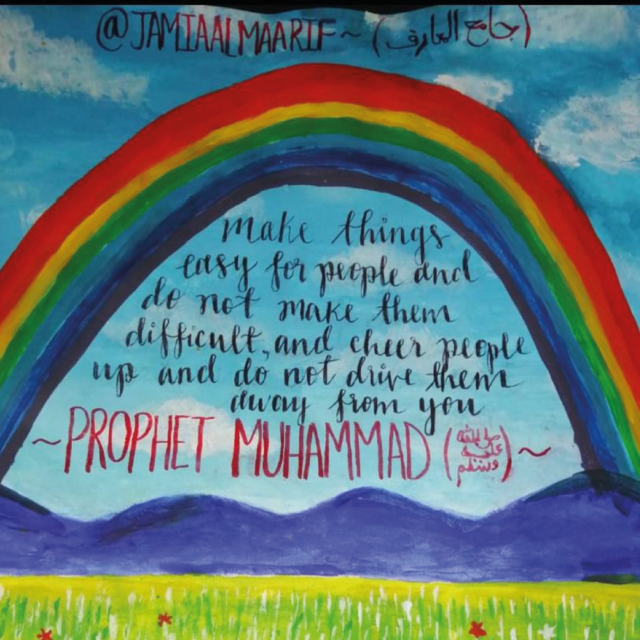 @JAMIAALMAARIF ~ (جامع العارف)
make things
easy for people and
do not make them
difficult, and cheer people
up and do not drive them
away from you
~PROPHET MUHAMMAD (صلى الله عليه وسلم)~